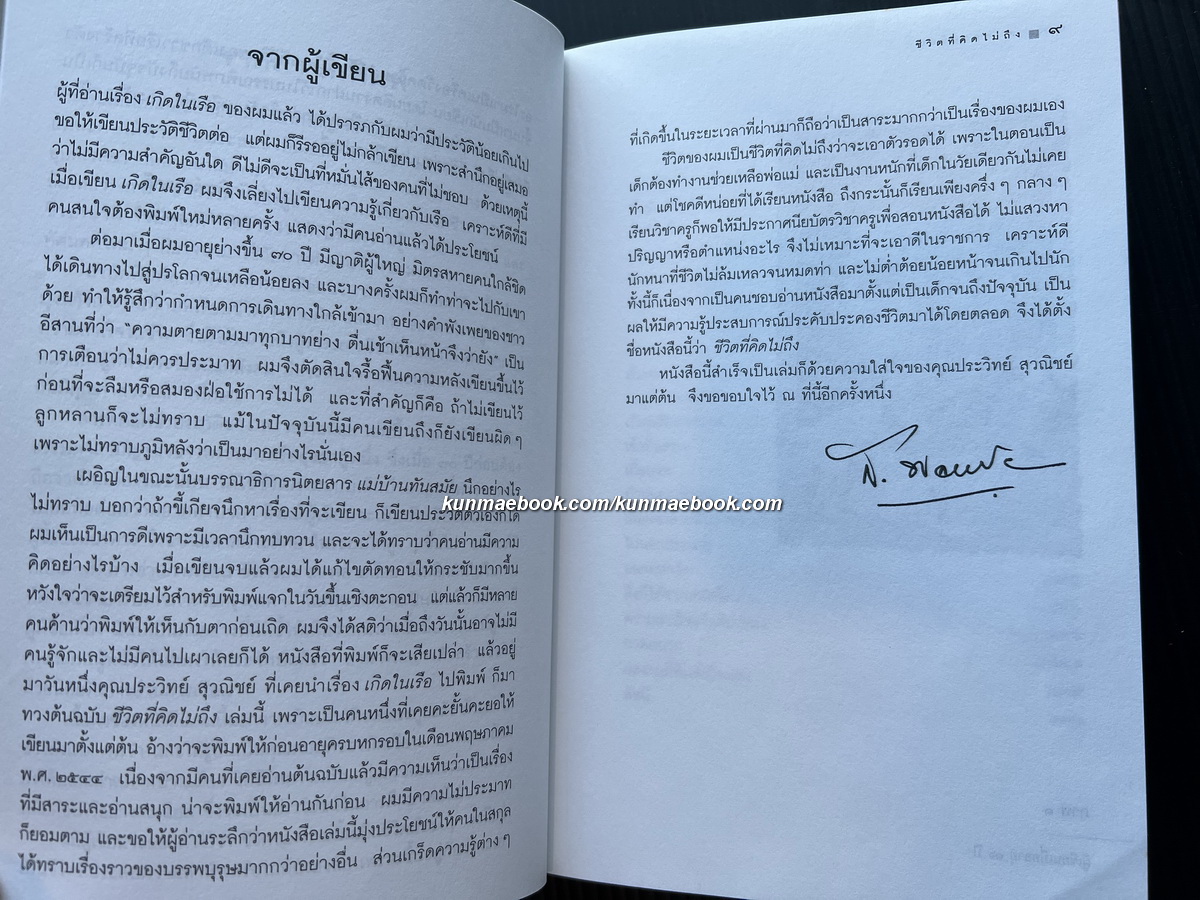 จากผู้เขียน
ผู้ที่อ่านเรื่อง เกิดในเรือ ของผมแล้ว ได้ปรารภกับผมว่ามีประวัติน้อยเกินไป
ขอให้เขียนประวัติชีวิตต่อ แต่ผมก็รีรออยู่ไม่กล้าเขียน เพราะสำนึกอยู่เสมอ
ว่าไม่มีความสำคัญอันใด ดีไม่ดีจะเป็นที่หมั่นไส้ของคนที่ไม่ชอบ ด้วยเหตุนี้
เมื่อเขียน เกิดในเรือ ผมจึงเลี่ยงไปเขียนความรู้เกี่ยวกับเรือ เคราะห์ดีที่มี
คนสนใจต้องพิมพ์ใหม่หลายครั้ง แสดงว่ามีคนอ่านแล้วได้ประโยชน์
ต่อมาเมื่อผมอายุย่างขึ้น ๗๐ ปี มีญาติผู้ใหญ่ มิตรสหายคนใกล้ชิด
ได้เดินทางไปสู่ปรโลกจนเหลือน้อยลง และบางครั้งผมก็ทำท่าจะไปกับเขา
ด้วย ทำให้รู้สึกว่ากำหนดการเดินทางใกล้เข้ามา อย่างคำพังเพยของชาว
อีสานที่ว่า “ความตายตามมาทุกบาทย่าง ตื่นเช้าเห็นหน้าจึงว่ายัง” เป็น
การเตือนว่าไม่ควรประมาท ผมจึงตัดสินใจรื้อฟื้นความหลังเขียนขึ้นไว้
ก่อนที่จะลืมหรือสมองฝ่อใช้การไม่ได้ และที่สำคัญก็คือ ถ้าไม่เขียนไว้
ลูกหลานก็จะไม่ทราบ แม้ในปัจจุบันนี้มีคนเขียนถึงก็ยังเขียนผิด ๆ
เพราะไม่ทราบภูมิหลังว่าเป็นมาอย่างไรนั่นเอง
เผอิญในขณะนั้นบรรณาธิการนิตยสาร แม่บ้านทันสมัย นึกอย่างไร
ไม่ทราบ บอกว่าถ้าขี้เกียจนึกหาเรื่องที่จะเขียน ก็เขียนประวัติตัวเองก็ได้
ผมเห็นเป็นการดีเพราะมีเวลานึกทบทวน และจะได้ทราบว่าคนอ่านมีความ
คิดอย่างไรบ้าง เมื่อเขียนจบแล้วผมได้แก้ไขตัดทอนให้กระชับมากขึ้น
หวังใจว่าจะเตรียมไว้สำหรับพิมพ์แจกในวันขึ้นเชิงตะกอน แต่แล้วก็มีหลาย
คนค้านว่าพิมพ์ให้เห็นกับตาก่อนเถิด ผมจึงได้สติว่าเมื่อถึงวันนั้นอาจไม่มี
คนรู้จักและไม่มีคนไปเผาเลยก็ได้ หนังสือที่พิมพ์ก็จะเสียเปล่า แล้วอยู่
มาวันหนึ่งคุณประวิทย์ สุวณิชย์ ที่เคยนำเรื่อง เกิดในเรือ ไปพิมพ์ ก็มา
ทวงต้นฉบับ ชีวิตที่คิดไม่ถึง เล่มนี้ เพราะเป็นคนหนึ่งที่เคยคะยั้นคะยอให้
เขียนมาตั้งแต่ต้น อ้างว่าจะพิมพ์ให้ก่อนอายุครบหกรอบในเดือนพฤษภาคม
พ.ศ. ๒๕๔๔ เนื่องจากมีคนที่เคยอ่านต้นฉบับแล้วมีความเห็นว่าเป็นเรื่อง
ที่มีสาระและอ่านสนุก น่าจะพิมพ์ให้อ่านกันก่อน ผมมีความไม่ประมาท
ก็ยอมตาม และขอให้ผู้อ่านระลึกว่าหนังสือเล่มนี้มุ่งประโยชน์ให้คนในสกุล
ได้ทราบเรื่องราวของบรรพบุรุษมากกว่าอย่างอื่น ส่วนเกร็ดความรู้ต่าง ๆ
ชีวิตที่คิดไม่ถึง ๙
ที่เกิดขึ้นในระยะเวลาที่ผ่านมาก็ถือว่าเป็นสาระมากกว่าเป็นเรื่องของผมเอง
ชีวิตของผมเป็นชีวิตที่คิดไม่ถึงว่าจะเอาตัวรอดได้ เพราะในตอนเป็น
เด็กต้องทำงานช่วยเหลือพ่อแม่ และเป็นงานหนักที่เด็กในวัยเดียวกันไม่เคย
ทำ แต่โชคดีหน่อยที่ได้เรียนหนังสือ ถึงกระนั้นก็เรียนเพียงครึ่ง ๆ กลาง ๆ
เรียนวิชาครูก็พอให้มีประกาศนียบัตรวิชาครูเพื่อสอนหนังสือได้ ไม่แสวงหา
ปริญญาหรือตำแหน่งอะไร จึงไม่เหมาะที่จะเอาดีในราชการ เคราะห์ดี
นักหนาที่ชีวิตไม่ล้มเหลวจนหมดท่า และไม่ต่ำต้อยน้อยหน้าจนเกินไปนัก
ทั้งนี้ก็เนื่องจากเป็นคนชอบอ่านหนังสือมาตั้งแต่เป็นเด็กจนถึงปัจจุบัน เป็น
ผลให้มีความรู้ประสบการณ์ประคับประคองชีวิตมาได้โดยตลอด จึงได้ตั้ง
ชื่อหนังสือนี้ว่า ชีวิตที่คิดไม่ถึง
หนังสือนี้สำเร็จเป็นเล่มก็ด้วยความใส่ใจของคุณประวิทย์ สุวณิชย์
มาแต่ต้น จึงขอขอบใจไว้ ณ ที่นี้อีกครั้งหนึ่ง
kunmaebook.com/kunmaebook.com